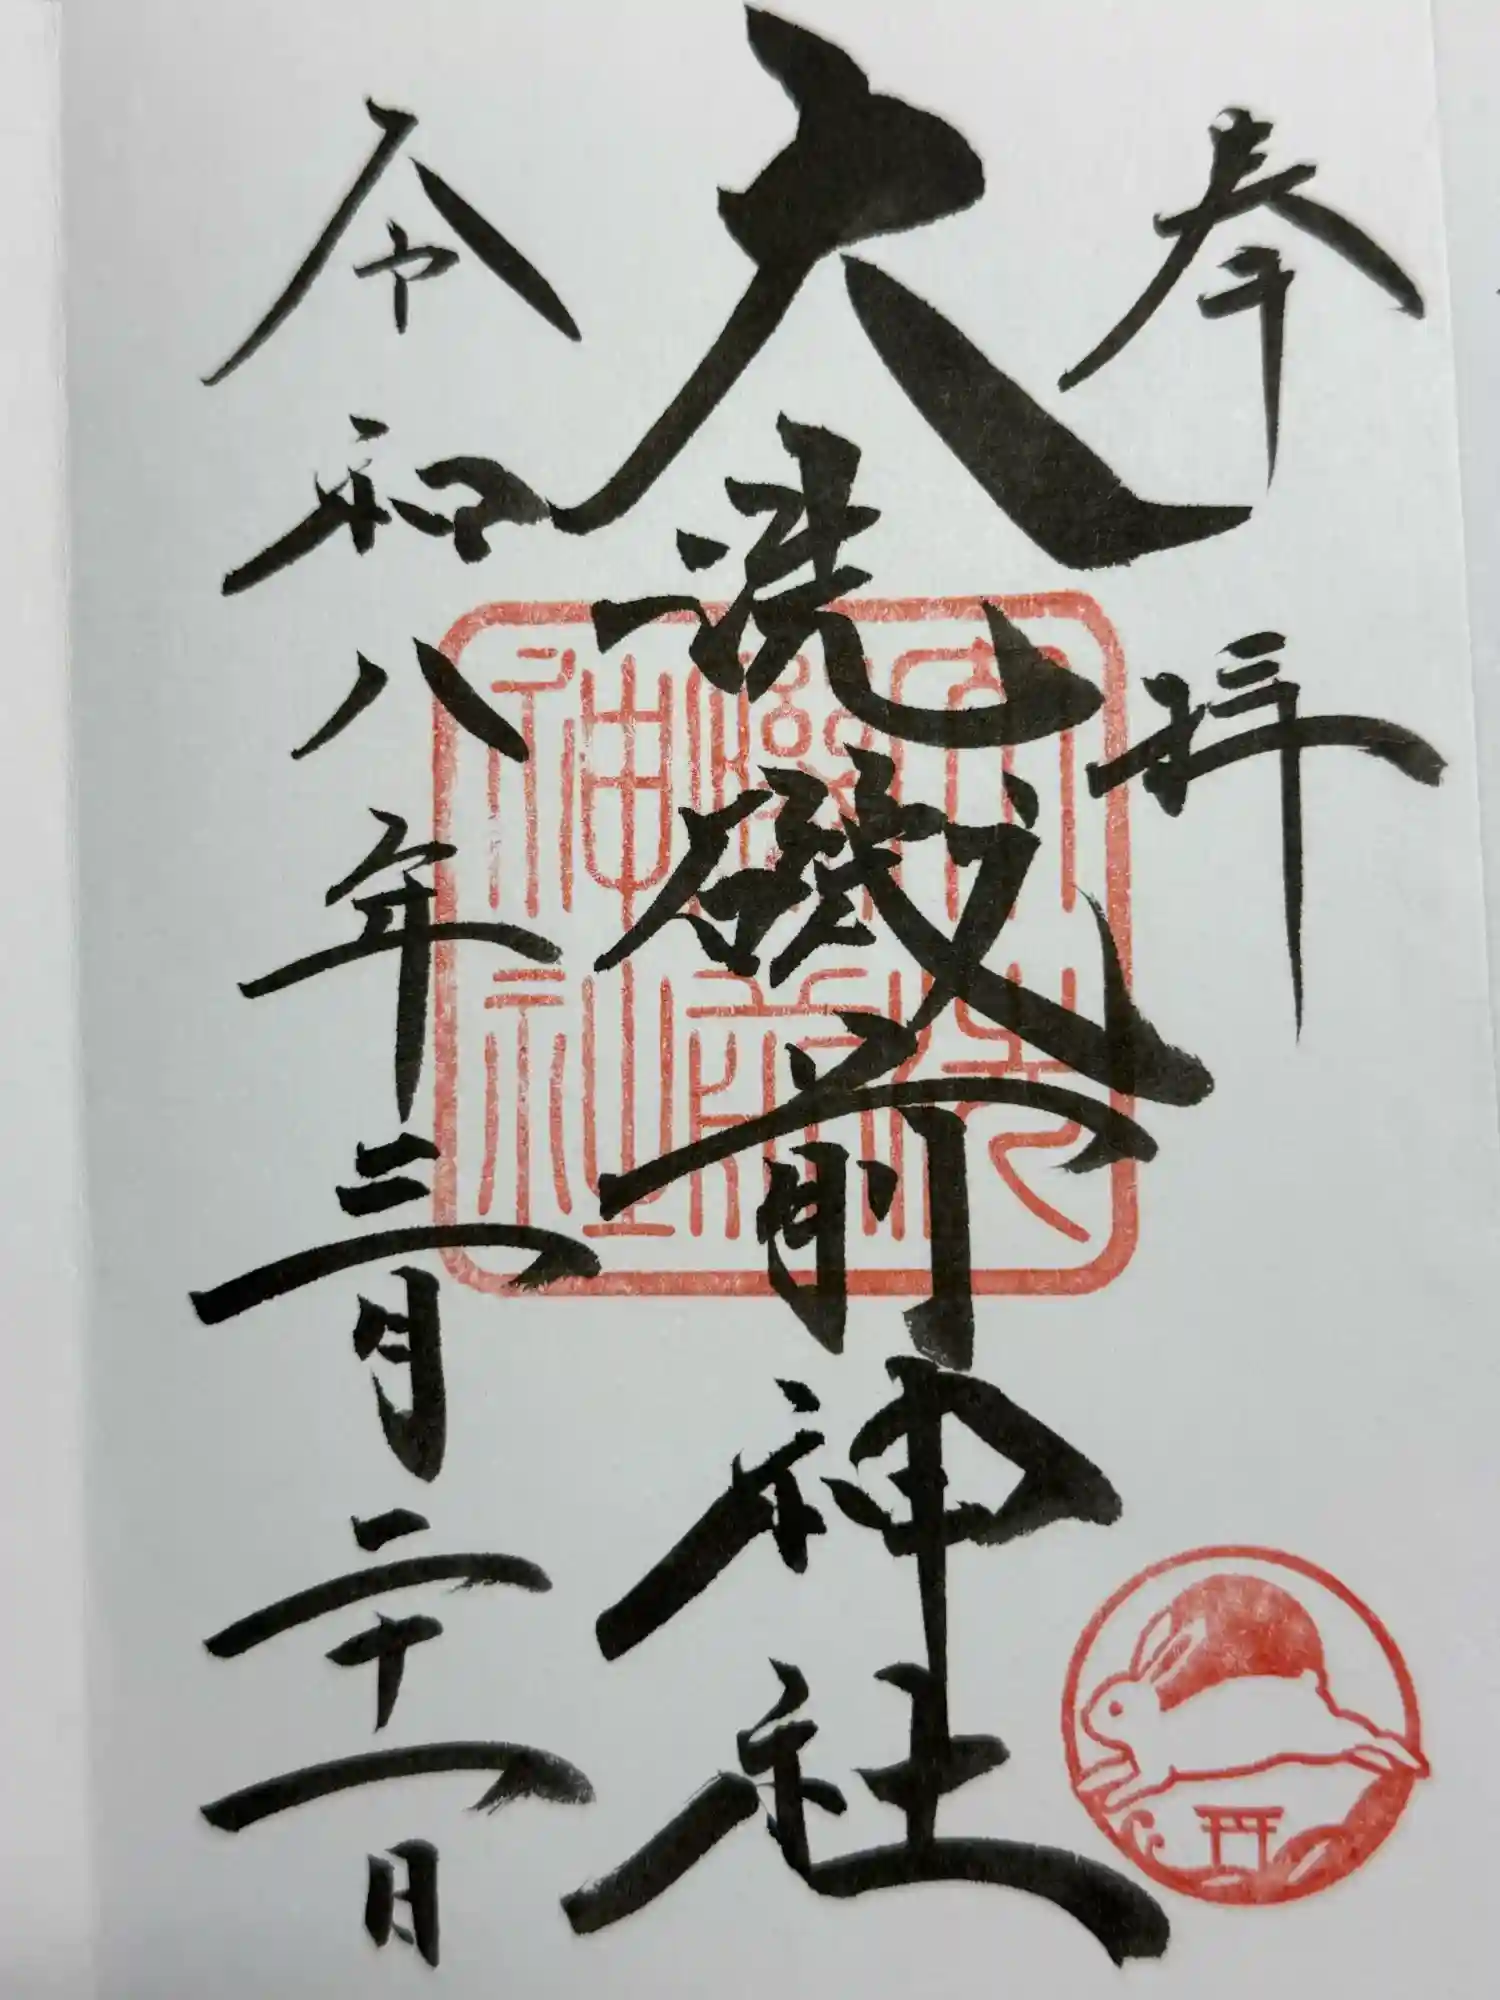 奉拝
大洗磯前神社
令和八年三月二十一日
大洗
磯前
神社